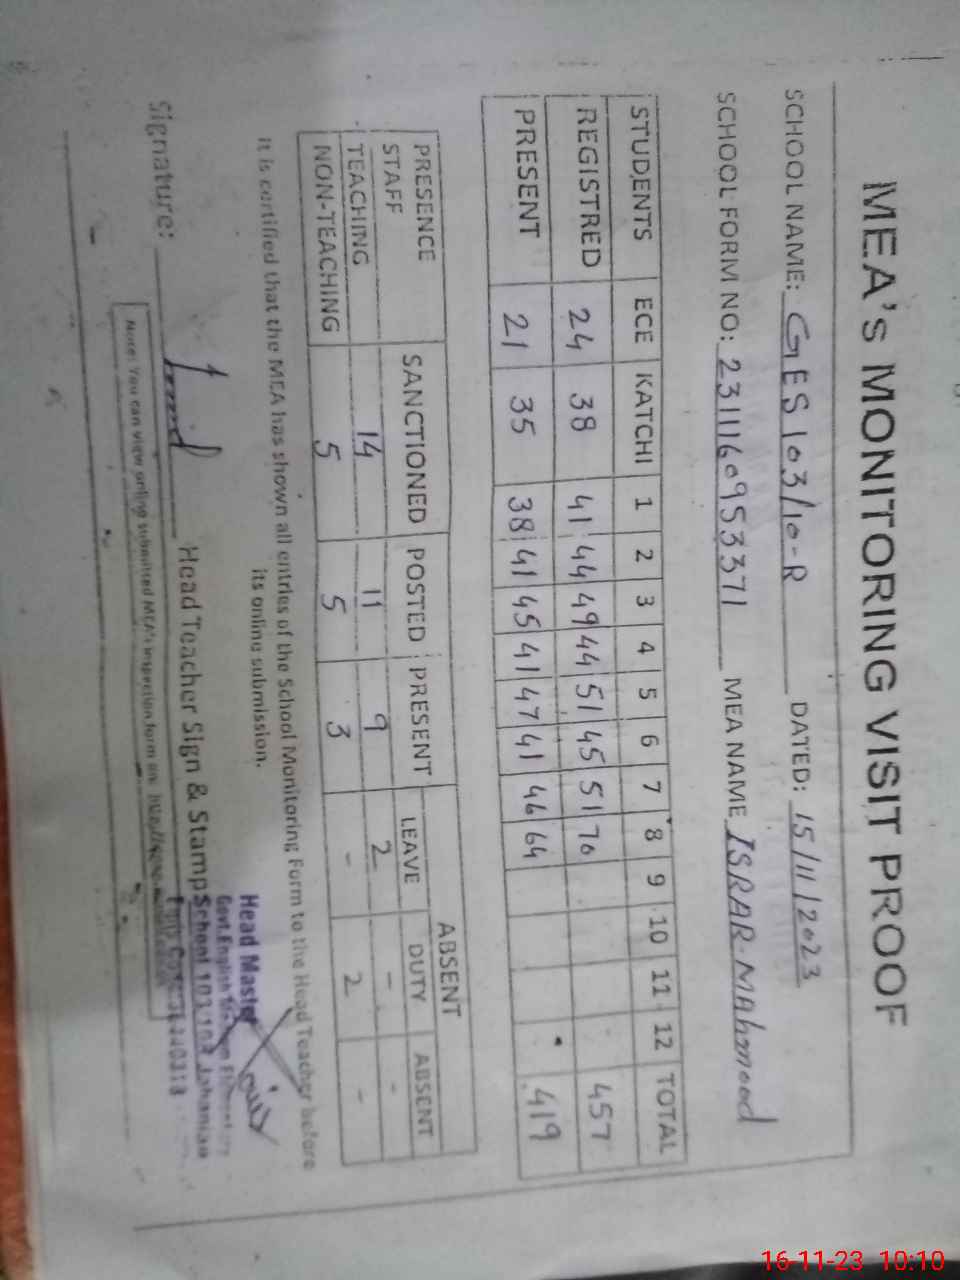 MEA'S MONITORING VISIT PROOF
SCHOOL NAME: GES 103/10-R DATED: 15/11/2023
SCHOOL FORM NO: 2311160953371 MEA NAME ISRAR. MAHmood
STUDENTS ECE KATCHI 1 2 3 4 5 6 7 8 9 10 11 12 TOTAL
REGISTRED 24 38 41 44 49 44 51 45 51 70 457
PRESENT 21 35 38 41 45 41 47 41 46 64 419
PRESENCE SANCTIONED POSTED PRESENT ABSENT
STAFF LEAVE DUTY ABSENT
TEACHING 14 11 9 2 - -
NON-TEACHING 5 5 3 - 2 -
It is certified that the MEA has shown all entries of the School Monitoring Form to the Head Teacher before
its online submission.
Signature: Head Teacher Sign & Stamp:
Head Master
Govt. English
School 103/10R Jahanian
Note: You can view online submitted MEA's inspection form on:
16-11-23 10:10